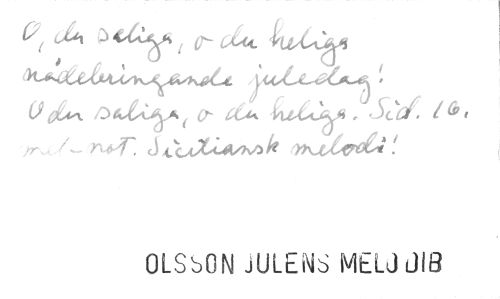 O, du saliga, o du heliga
nådebringande juledag!
O du saliga, o du heliga. Sid. 16.
mel-not. Siciliansk melodi!
OLSSON JULENS MELODIB